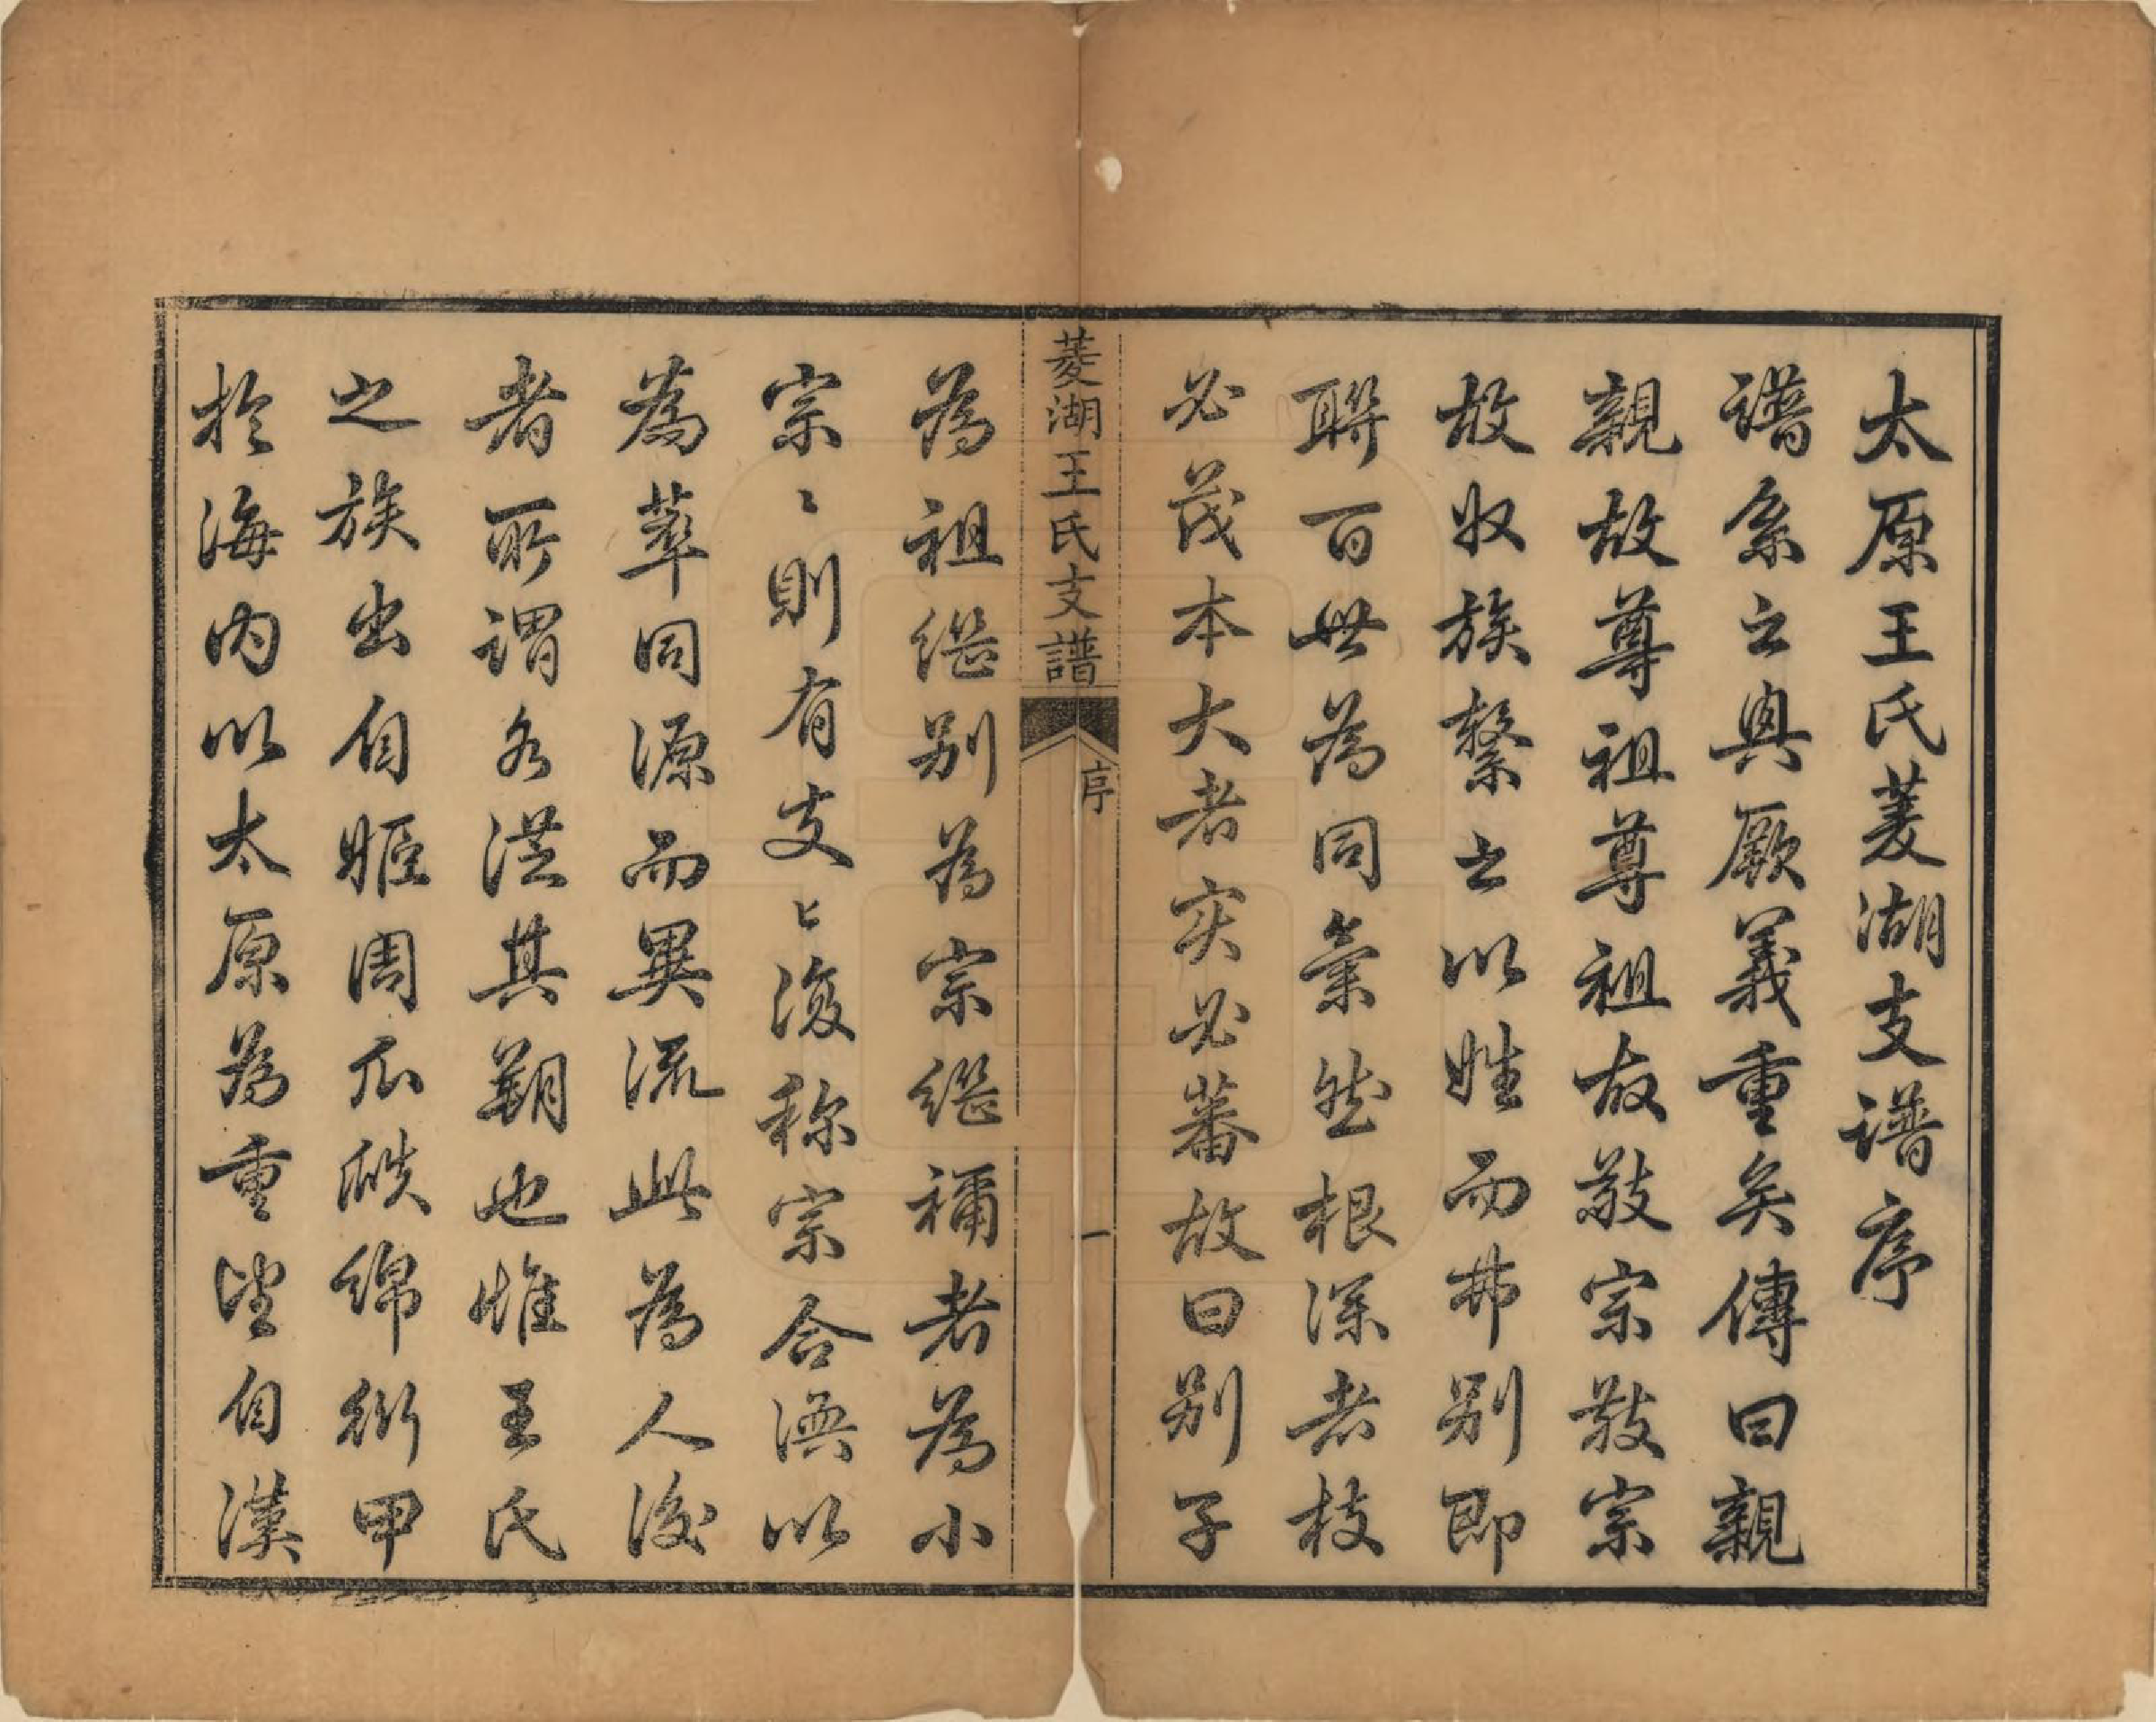 太原王氏菱湖支譜序
譜系之興厥義重矣傳曰親
親故尊祖尊祖故敬宗敬宗
故收族繫之以姓而弗別即
聯百世為同氣然根深者枝
必茂本大者实必蕃故曰別子
菱湖王氏支譜
序
一
為祖繼別為宗繼禰者為小
宗〻則有支〻復称宗合渙以
為萃同源而異流此為人後
者所謂各洪其朔也惟王氏
之族出自姬周瓜瓞綿衍甲
於海内以太原為重望自漢